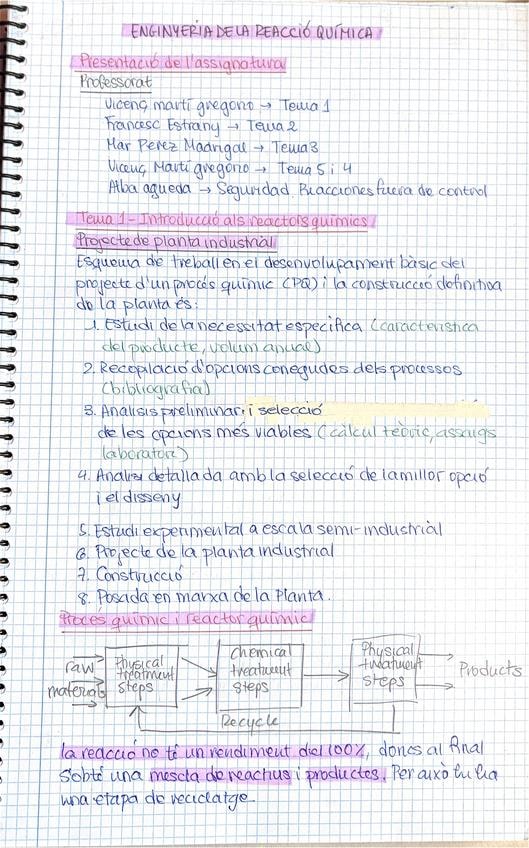 ENGINYERIA DE LA REACCIÓ QUÍMICA
Presentació de l'assignatura
Professorat
Vicenç martí gregorio → Tema 1
Francesc Estrany → Tema 2
Mar Perez Madrigal → Tema 3
Vicenç Martí gregorio → Tema 5 i 4
Alba agueda → Seguridad. Reacciones fuera de control
Tema 1 - Introducció als reactors químics
Projecte de planta industrial
Esquema de treball en el desenvolupament bàsic del
projecte d'un procés químic (PQ) i la construcció definitiva
de la planta és:
1. Estudi de la necessitat especifica (característica
del producte, volum anual)
2. Recopilació d'opcions conegudes dels processos
(bibliografia)
3. Analisis preliminar i selecció
de les opcions més viables (càlcul teòric, assaigs
laboratori)
4. Analisi detallada amb la selecció de la millor opció
i el disseny
5. Estudi experimental a escala semi-industrial
6. Projecte de la planta industrial
7. Construcció
8. Posada en marxa de la Planta.
Procés químic i reactor químic
raw materials
Physical treatment steps
Chemical treatment steps
Physical treatment steps
Products
Recycle
la reacció no té un rendiment del 100%, doncs al final
s'obté una mescla de reactius i productes. Per això hi ha
una etapa de reciclatge.